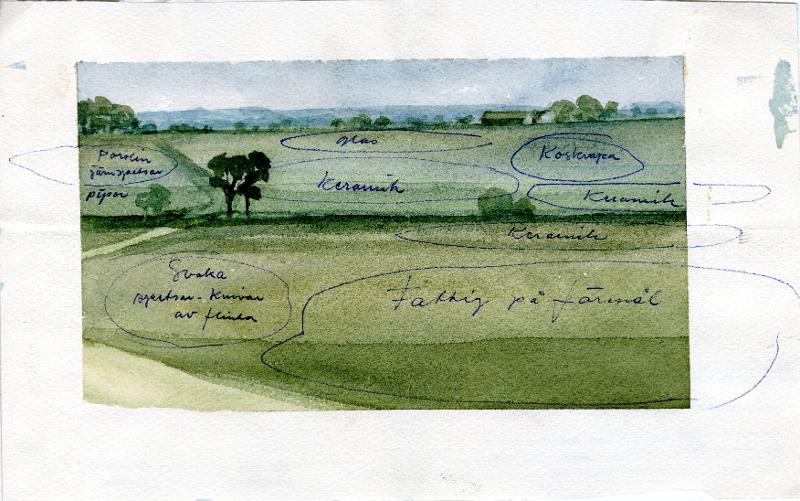 glas
Porslin
järnspetsar
pipor
Koskrapa
Keramik
Keramik
Keramik
spetsar - Knivar
av flinta
Fattig på föremål